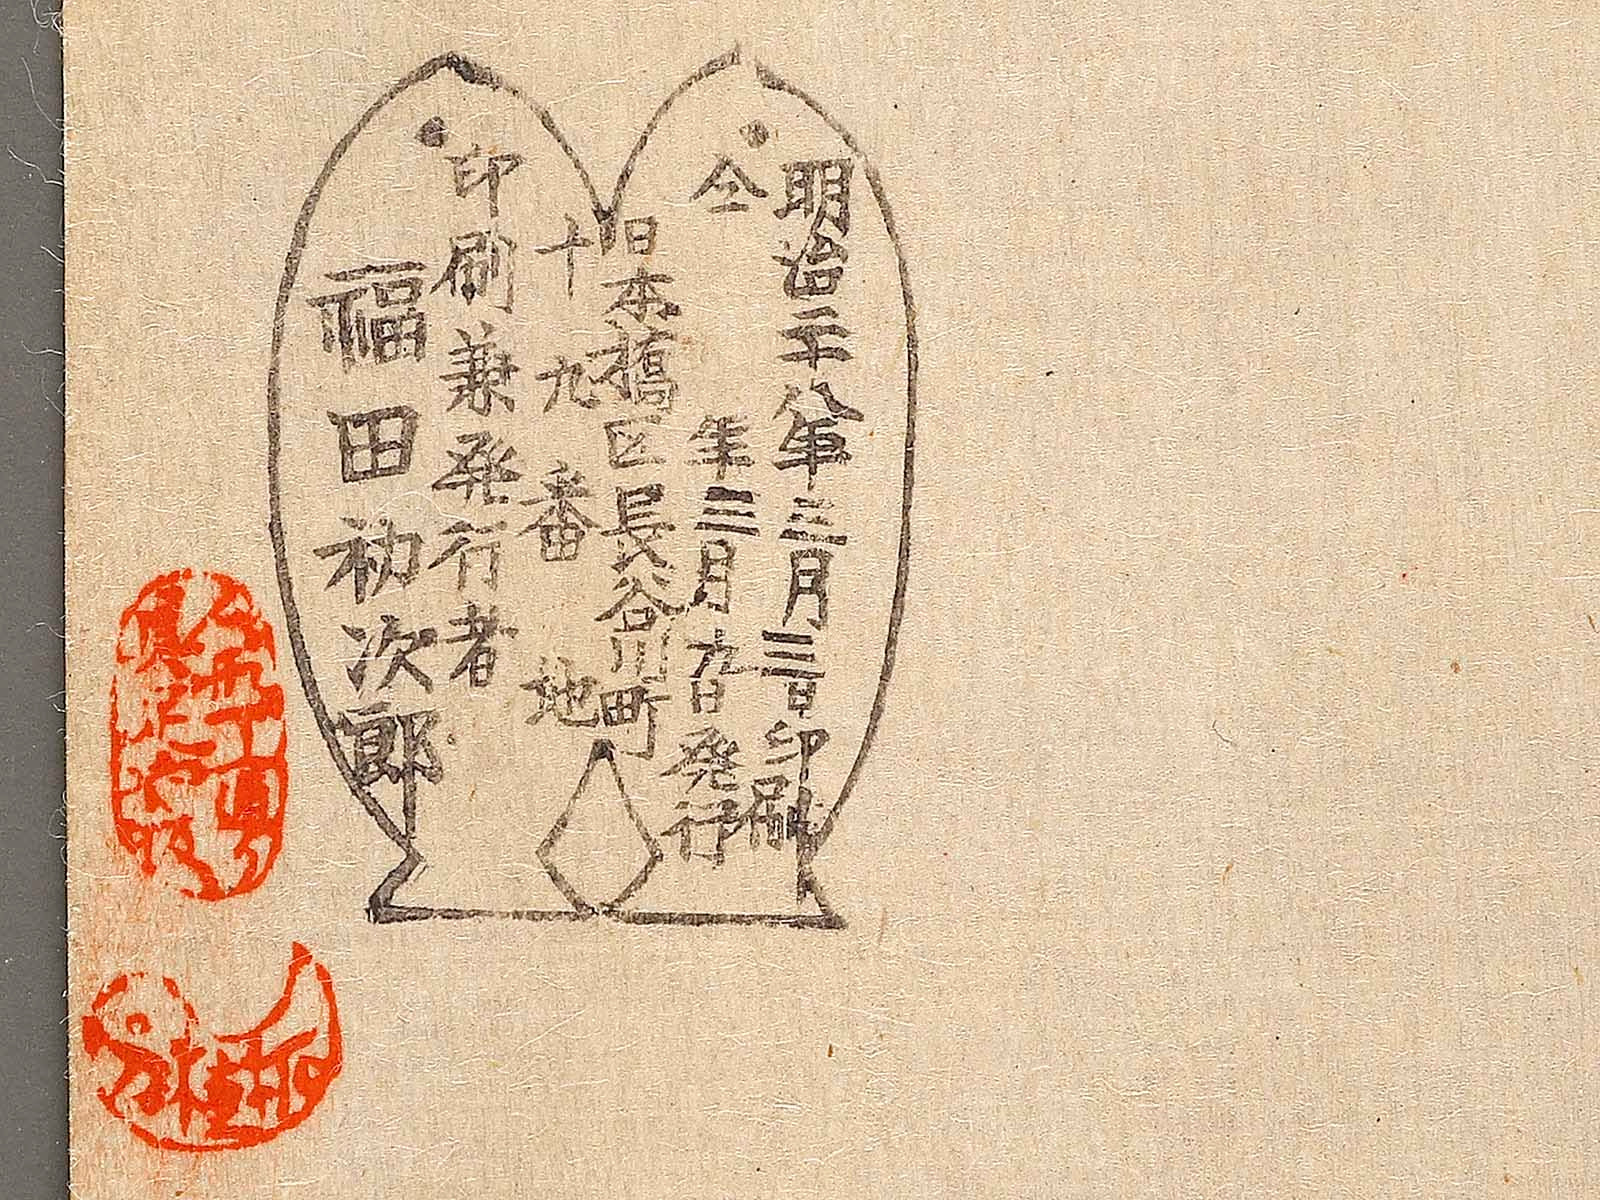 明治二十八年三月三日印刷
仝年三月九日発行
日本橋区長谷川町
十九番地
印刷兼発行者
福田初次郎